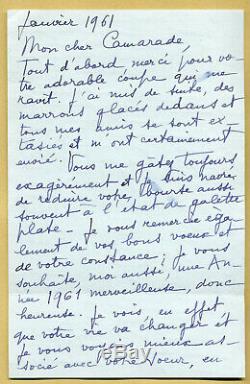 Janvier 1961
Mon cher Camarade,
Tout d'abord merci pour vo-
tre adorable coupe qui me
ravit. J'ai mis de suite, des
marrons glacés dedans et
tous mes amis se sont ex-
tasiés et m'ont certainement
envié.
Vous me gâtez toujours
exagérément et je suis navrée
de réduire votre bourse aussi
souvent à l'état de galette
plate. Je vous remercie éga-
lement de vos bons voeux et
de votre constance ; je vous
souhaite, moi aussi, une An-
née 1961 merveilleuse, donc
heureuse. Je vois en effet
que votre vie va changer et
je vous voyais mieux as-
socié avec votre Soeur, en